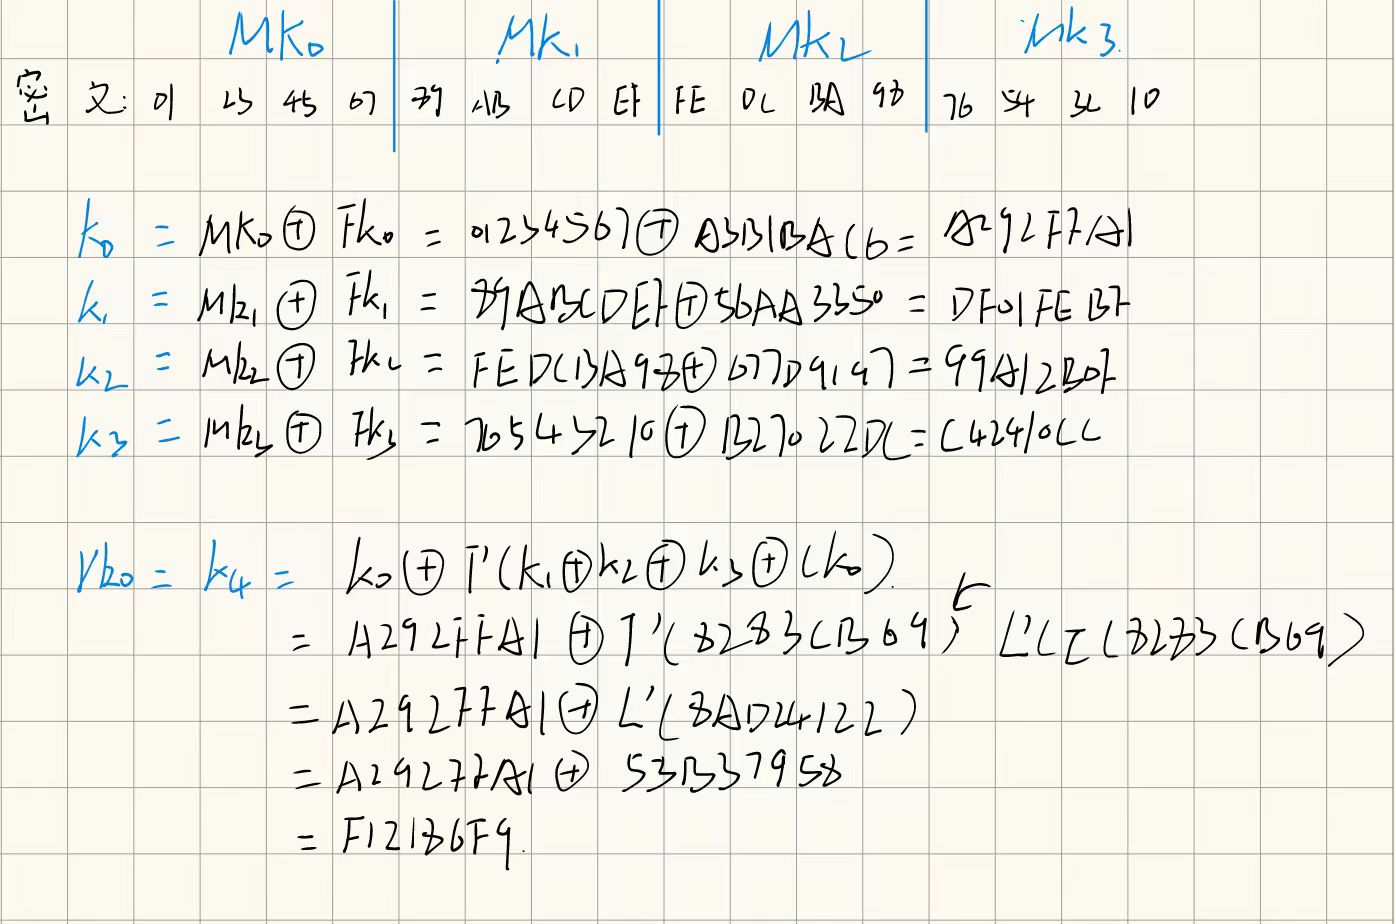 MK₀ Mk₁ Mk₂ Mk₃
密文: 01 23 45 67 89 AB CD EF FE DC BA 98 76 54 32 10
k₀ = MK₀ ⊕ Fk₀ = 01234567 ⊕ A3B1BAC6 = A292FFA1
k₁ = Mk₁ ⊕ Fk₁ = 89ABCDEF ⊕ 56AA3350 = DF01FEBF
k₂ = Mk₂ ⊕ Fk₂ = FEDCBA98 ⊕ 677D9197 = 99A12B0F
k₃ = Mk₃ ⊕ Fk₃ = 76543210 ⊕ B27022DC = C42410CC
rk₀ = k₄ = k₀ ⊕ T'(k₁ ⊕ k₂ ⊕ k₃ ⊕ Ck₀)
= A292FFA1 ⊕ T'(8283CB69) L'(τ(8283CB69)
= A292FFA1 ⊕ L'(8AD24122)
= A292FFA1 ⊕ 53B37958
= F12186F9.